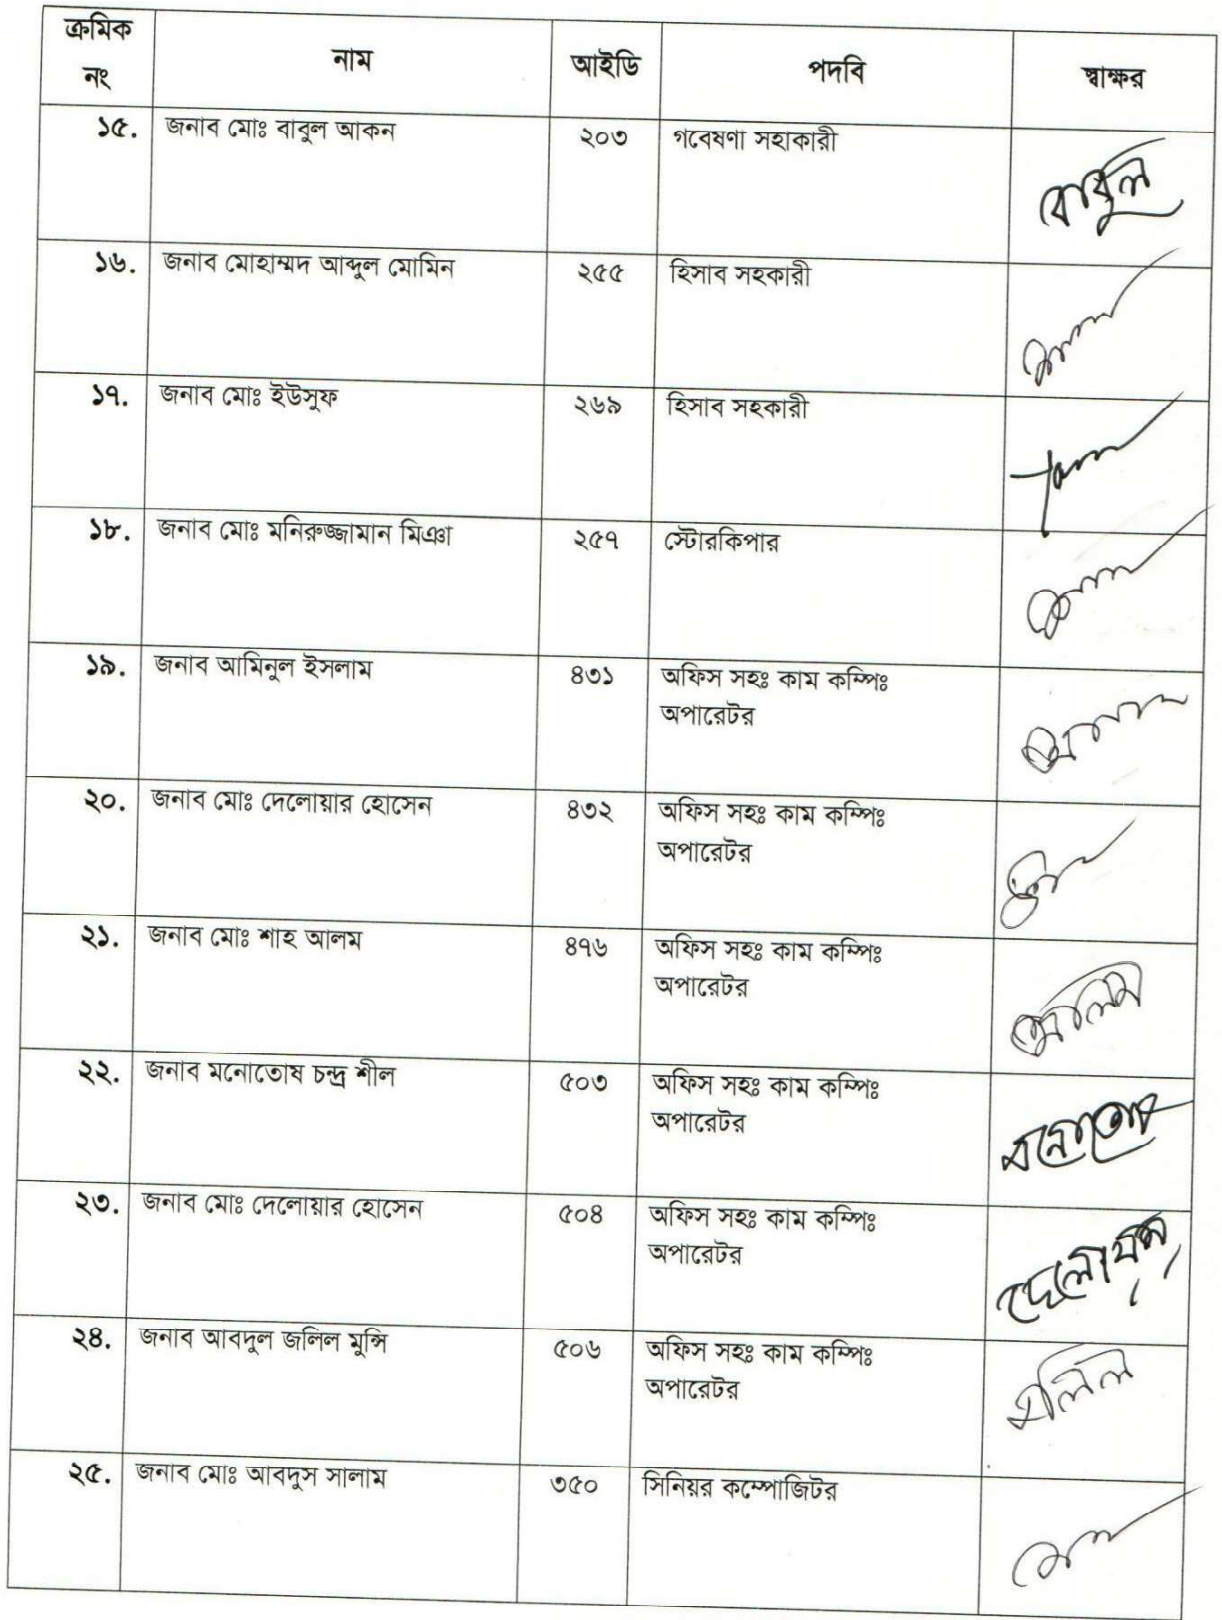 ক্রমিক নং নাম আইডি পদবি স্বাক্ষর
১৫. জনাব মোঃ বাবুল আকন ২০৩ গবেষণা সহাকারী বাবুল
১৬. জনাব মোহাম্মদ আব্দুল মোমিন ২৫৫ হিসাব সহকারী
১৭. জনাব মোঃ ইউসুফ ২৬৯ হিসাব সহকারী
১৮. জনাব মোঃ মনিরুজ্জামান মিঞা ২৫৭ স্টোরকিপার
১৯. জনাব আমিনুল ইসলাম ৪৩১ অফিস সহঃ কাম কম্পিঃ
অপারেটর
২০. জনাব মোঃ দেলোয়ার হোসেন ৪৩২ অফিস সহঃ কাম কম্পিঃ
অপারেটর
২১. জনাব মোঃ শাহ আলম ৪৭৬ অফিস সহঃ কাম কম্পিঃ
অপারেটর
২২. জনাব মনোতোষ চন্দ্র শীল ৫০৩ অফিস সহঃ কাম কম্পিঃ
অপারেটর মনোতোষ
২৩. জনাব মোঃ দেলোয়ার হোসেন ৫০৪ অফিস সহঃ কাম কম্পিঃ
অপারেটর দেলোয়ার
২৪. জনাব আবদুল জলিল মুন্সি ৫০৬ অফিস সহঃ কাম কম্পিঃ
অপারেটর জলিল
২৫. জনাব মোঃ আবদুস সালাম ৩৫০ সিনিয়র কম্পোজিটর